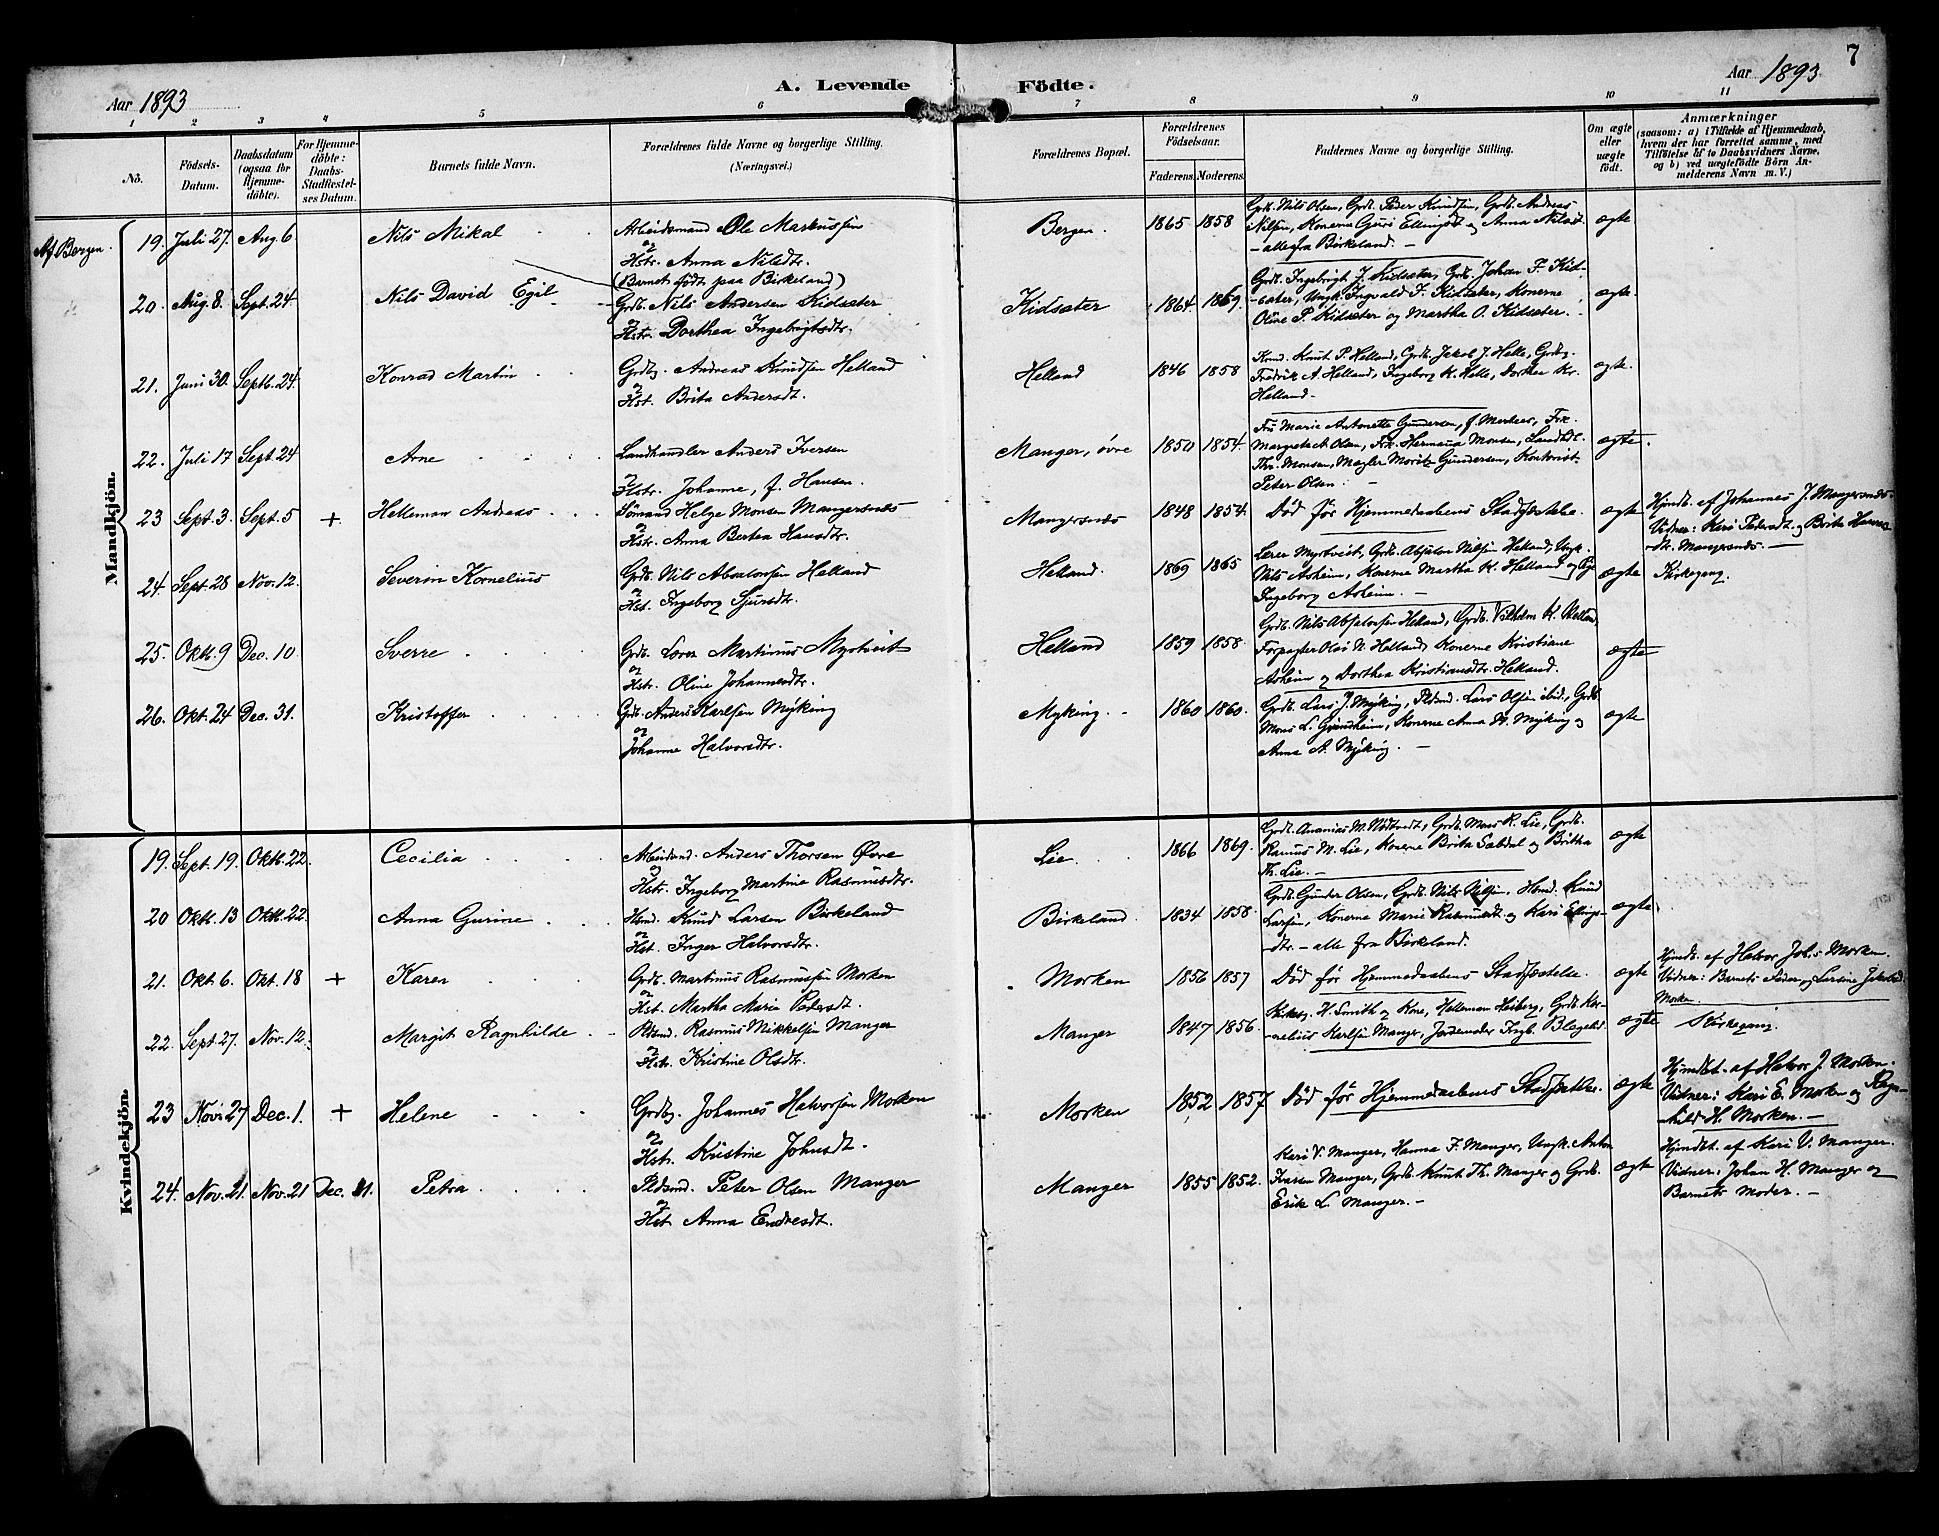 7
Aar 1893
A. Levende Födte.
Aar 1893
1 2 3 4 5 6 7 8 9 10 11
No.
Födsels-
Datum.
Daabsdatum
(ogsaa for
Hjemme-
döbte).
For Hjemme-
döbte:
Daabs-
Stadfæstel-
ses Datum.
Barnets fulde Navn.
Forældrenes fulde Navne og borgerlige Stilling.
(Næringsvei.)
Forældrenes Bopæl.
Forældrenes
Födselsaar.
Faderens. Moderens.
Faddernes Navne og borgerlige Stilling.
Om ægte
eller
uægte
födt.
Anmærkninger
(saasom: a) i Tilfælde af Hjemmedaab,
hvem der har forrettet samme, med
Tilföielse af to Daabsvidners Navne,
og b) ved uægtefödte Börn An-
melderens Navn m. V.)
Mandkjön.
Af Bergen. 19. Juli 27. Aug. 6 Nils Mikal
Arbeidsmand Ole Markussen
og
Hstr. Anna Nilsdtr.
(Barnet født paa Birkeland)
Bergen 1865 1858
Grdb. Nils Olsen, Grdb. Peder Knudsen, Grdb. Andreas
Nilsen, Konerne Guri Ellingsdt og Anna Nilsdt.
- alle fra Birkeland. -
ægte
20. Aug. 8. Sept. 24. Nils David Egil
Grdb. Nils Andersen Kidsæter
og
Hstr. Dorthea Ingebrigtsdtr.
Kidsæter 1864. 1869.
Grdb. Ingebrigt J. Kidsæter, Grdb. Johan F. Kid-
sæter, Ungk. Ingvald F. Kidsæter, Konerne
Oline P. Kidsæter og Martha O. Kidsæter.
ægte.
21. Juni 30. Septb. 24 Konrad Martin
Grdbg. Andreas Knudsen Helland
og
Hst. Brita Andersdt.
Helland 1846 1858
Knud P. Helland, Grdb. Jakob J. Helle, Grdbg.
Fredrik A. Helland, Ingeborg K. Helle, Dorthea Kr.
Helland.
ægte.
22. Juli 17 Sept. 24 Arne
Landhandler Anders Iversen
og
Hstr. Johanne, f. Hansen.
Manger, øvre 1850 1854.
Fru Marie Antonette Gundersen, f. Frk.
Margrethe Olsen, Frk. Hermana Monsen, Landhdl.
Th. Monsen, Mægler Moritz Gundersen, Kontorist
Peter Olsen.
ægte.
23 Sept. 3. Sept. 5 + Helleman Andreas
Sømand Helge Monsen Mangersnes
og
Hstr. Anna Bertea Hansdtr.
Mangersnes 1848 1854.
Død før Hjemmedaabens Stadfæstelse.
ægte
Hjmdt. af Johannes J. Mangersnes.
Vidner: Kari Pedersdt. og Brita Hannes-
dtr. Mangersnes. -
24. Sept. 28 Nov. 12. Severin Kornelius
Grdb. Nils Absalonsen Helland
og
Hst. Ingeborg Sjursdtr.
Helland. 1869 1865
Lærer Myrtveit, Grdb. Absalon Nilsen Helland, Ungk.
Nils Asheim, Konerne Martha K. Helland og Pige
Ingeborg Asheim. -
ægte
Kirkegang.
25. Oktb. 9 Dec. 10. Sverre
Grdb. Lærer Martinus Myrtveit
og
Hstr. Oline Johannesdtr.
Helland 1859 1858.
Grdb. Nils Absalonsen Helland, Grdb. Vilhelm K. Helland,
Forpagter Olai N. Helland, Konerne Kristiane
Asheim og Dorthea Kristiansdtr. Helland.
ægte
26. Okt. 24 Dec. 31. Kristoffer
Grdb. Anders Karlsen Myking
og
Johanne Halvorsdtr.
Myking. - 1860 1860.
Grdb. Lars J. Myking, Pldsmd. Lars Olsen ibid., Grdb.
Mons L. Grindheim, Konerne Anna H. Myking og
Anna A. Myking. -
ægte
Kvindekjön.
19. Sept. 19. Oktb. 22. Cecilia
Arbeidsmd. Anders Thorsen Øvre
og
Hstr. Ingeborg Martine Rasmusdtr.
Lie. 1866 1869.
Grdb. Ananias M. Nødtvedt, Grdb. Mons R. Lie, Grdb.
Rasmus M. Lie, Konerne Brita Sæbdal og Britha
Th. Lie. -
ægte
20 Oktb. 13 Oktb. 22. Anna Gurine
Hmd. Knud Larsen Birkeland
og
Hst. Inger Halvorsdtr.
Birkeland. 1834 1858.
Grdb. Gunder Olsen, Grdb. Nils Nilsen, Hmd. Knud
Larsen, Konerne Marie Rasmusdt. og Kari Ellings-
dtr. - alle fra Birkeland.
ægte.
21. Okt. 6. Okt. 18 + Karen
Grdb. Martinus Rasmussen Morken
og
Hst. Martha Marie Pedersdt.
Morken 1856 1857
Død før Hjemmedaabens Stadfæstelse.
ægte
Hjmdt. af Halvor Johs. Morken
Vidner: Barnets Fader og Larsine Jakobsd.
Morken.
22. Sept. 27. Nov. 12. Margit Ragnhilde
Pldsmd. Rasmus Mikkelsen Manger
og
Hstr. Kristine Olsdtr.
Manger 1847 1856.
Kirkesg. H. Smith og Kone, Helleman Heiberg, Grdb. Kor-
nelius Karlsen Manger, Jordemoder Ingb.
ægte
Kirkegang.
23 Novi 27 Dec. 1. + Helene
Grdbg. Johannes Halvorsen Morken
og
Hstr. Kristine Johnsdt.
Morken 1852 1857
Død før Hjemmedaabens Stadfæstelse.
ægte
Hjmdbt. af Halvor J. Morken.
Vidner: Kari E. Morken og Ragn-
hild H. Morken. -
24. Nov. 21. Nov. 21 Dec. 31. Petra
Pldsmd. Peter Olsen Manger
og
Hst. Anna Endresdt.
Manger 1855 1852.
Kari V. Manger, Hanna F. Manger, Ungk. Anton
Iversen Manger, Grdb. Knut Th. Manger og Grdb.
Erik L. Manger. -
ægte
Hjmdbt. af Kari V. Manger.
Vidner: Johan H. Manger og
Barnets Moder. -